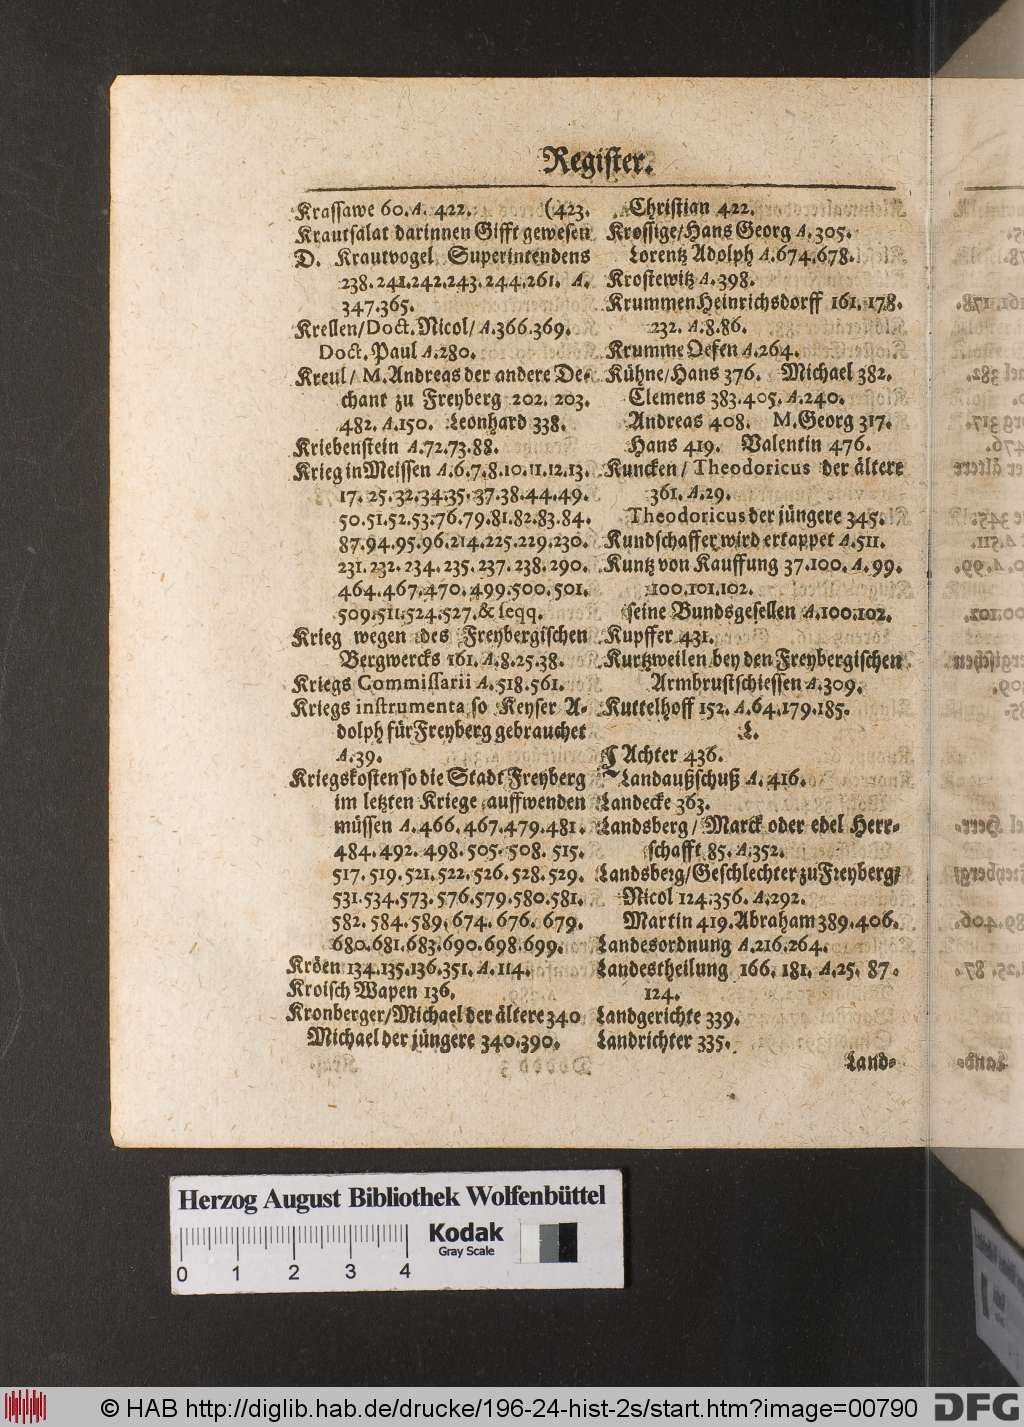 Register.
Krassawe 60. A. 422. (423.
Krautsalat darinnen Gifft gewesen
D. Krautvogel Superintendens
238. 241. 242. 243. 244. 261. A.
347. 365.
Krellen/ Doct. Nicol/ A. 366. 369.
Doct. Paul A. 280.
Kreul/ M. Andreas der andere De-
chant zu Freyberg 202. 203.
482. A. 150. Leonhard 338.
Kriebenstein A. 72. 73. 88.
Krieg in Meissen A. 6. 7. 8. 10. 11. 12. 13.
17. 25. 32. 34. 35. 37. 38. 44. 49.
50. 51. 52. 53. 76. 79. 81. 82. 83. 84.
87. 94. 95. 96. 214. 225. 229. 230.
231. 232. 234. 235. 237. 238. 290.
464. 467. 470. 499. 500. 501.
509. 511. 524. 527. & seqq.
Krieg wegen des Freybergischen
Bergwercks 161. A. 8. 25. 38.
Kriegs Commissarii A. 518. 561.
Kriegs instrumenta so Keyser A-
dolph für Freyberg gebrauchet
A. 39.
Kriegskosten so die Stadt Freyberg
im letzten Kriege auffwenden
müssen A. 466. 467. 479. 481.
484. 492. 498. 505. 508. 515.
517. 519. 521. 522. 526. 528. 529.
531. 534. 573. 576. 579. 580. 581.
582. 584. 589. 674. 676. 679.
680. 681. 683. 690. 698. 699.
Kröen 134. 135. 136. 351. A. 114.
Kroisch Wapen 136.
Kronberger/ Michael der ältere 340
Michael der jüngere 340. 390.
Christian 422.
Krossige/ Hans Georg A. 305.
Lorentz Adolph A. 674. 678.
Krostewitz A. 398.
Krummen Heinrichsdorff 161. 178.
232. A. 8. 86.
Krumme Oefen A. 264.
Kühne/ Hans 376. Michael 382.
Clemens 383. 405. A. 240.
Andreas 408. M. Georg 317.
Hans 419. Valentin 476.
Kuncken/ Theodoricus der ältere
361. A. 29.
Theodoricus der jüngere 345.
Kundschaffer wird ertappet A. 511.
Kuntz von Kauffung 37. 100. A. 99.
100. 101. 102.
seine Bundsgesellen A. 100. 102.
Kupffer 431.
Kurtzweilen bey den Freybergischen
Armbrustschiessen A. 309.
Kuttelhoff 152. A. 64. 179. 185.
L.
LAchter 436.
Landaußschuß A. 416.
Landecke 363.
Landsberg/ Marck oder edel Herr-
schafft 85. A. 352.
Landsberg/ Geschlechter zu Freyberg/
Nicol 124. 356. A. 292.
Martin 419. Abraham 389. 406.
Landesordnung A. 216. 264.
Landestheilung 166. 181. A. 25. 87.
124.
Landgerichte 339.
Landrichter 335.
Land-
Herzog August Bibliothek Wolfenbüttel
Kodak
Gray Scale
0 1 2 3 4
© HAB http://diglib.hab.de/drucke/196-24-hist-2s/start.htm?image=00790
DFG